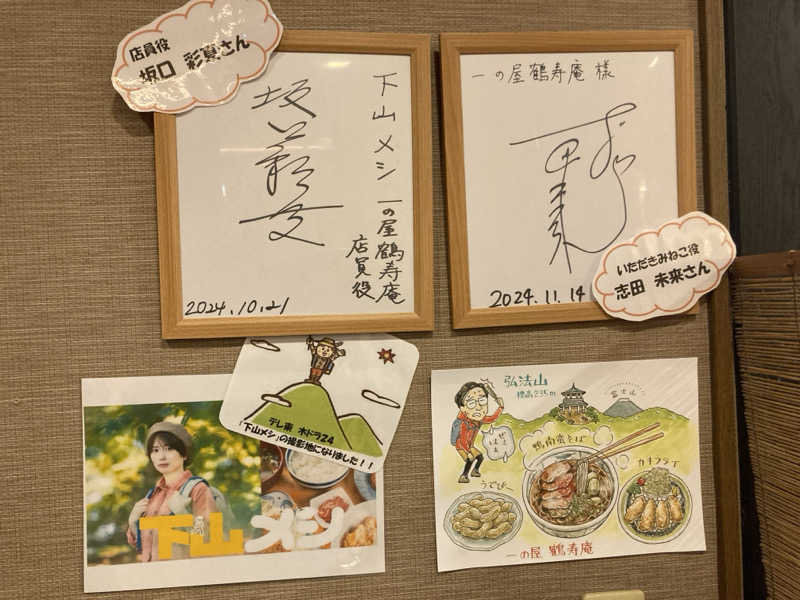 店員役
坂口 彩夏さん
下山メシ 一の屋 鶴寿庵
店員役
2024.10.21
一の屋鶴寿庵 様
2024.11.14
いただきみねこ役
志田 未来さん
テレ東 木ドラ24
「下山メシ」の撮影地になりました!!
下山メシ
弘法山
標高235m
富士山
ぜぇ
はぁ
鴨南蛮そば
うでぴー
カキフライ
一の屋 鶴寿庵